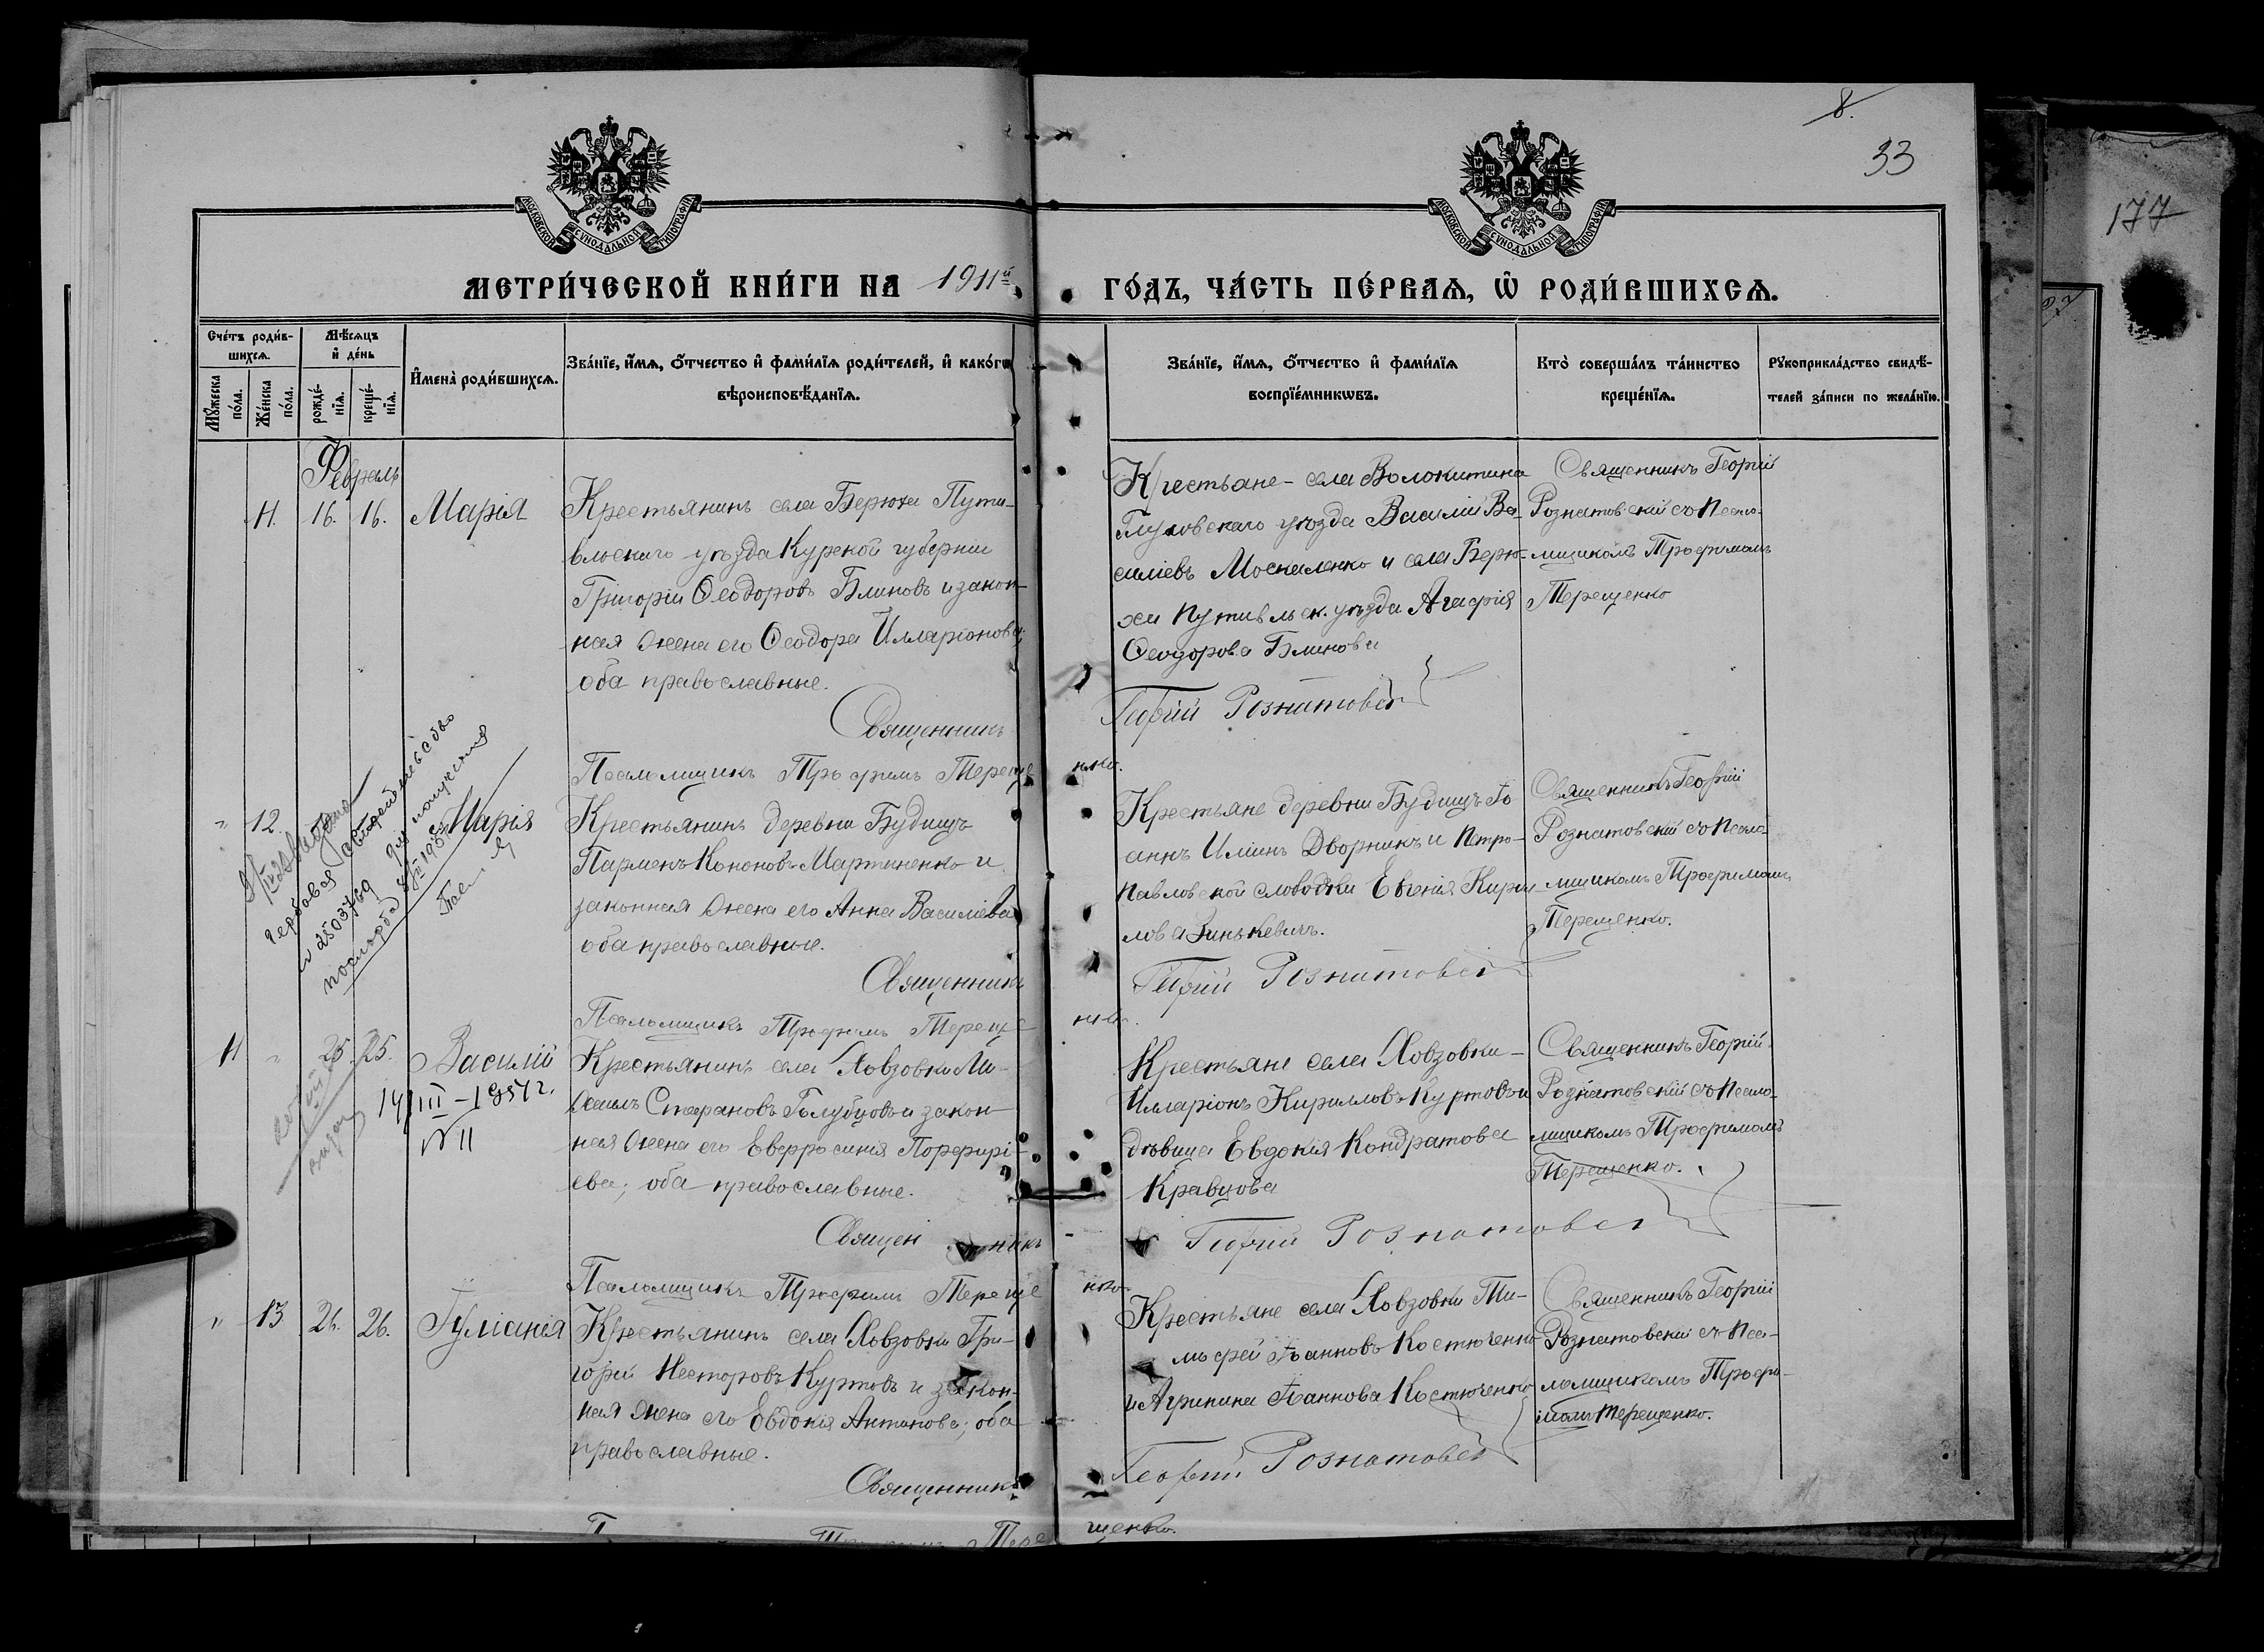 8.
33
177
МОСКОВСКОЙ СѴНОДАЛЬНОЙ ТИПОГРАФІИ
МОСКОВСКОЙ СѴНОДАЛЬНОЙ ТИПОГРАФІИ
МЕТРИ́ЧЕСКОЙ КНИ́ГИ НА 1911й
ГО́ДЪ, ЧА́СТЬ ПЕ́РВАѦ, Ѡ҆ РОДИ́ВШИХСѦ.
Сче́тъ роди́в-
шихсѧ.
Мꙋ́жеска
по́ла.
Же́нска
по́ла.
Мѣ́сѧцъ
и҆ де́нь
рожде́-
нїѧ.
креще́-
нїѧ.
И҆мена̀ роди́вшихсѧ.
Зва́нїе, и҆́мѧ, ѻ҆́тчество и҆ фами́лїѧ роди́телей, и҆ како́гѡ
вѣроисповѣ́данїѧ.
Зва́нїе, и҆́мѧ, ѻ҆́тчество и҆ фами́лїѧ
воспрїе́мникѡвъ.
Кто̀ соверша́лъ та́инство
креще́нїѧ.
Рꙋкоприкла́дство свидѣ́-
телей за́писи по жела́нїю.
Февраль
11. 16. 16. Марія
Крестьянинъ села Берюха Пути-
вльскаго уѣзда Курской губерніи
Григорій Ѳеодоровъ Блиновъ и закон-
ная жена его Ѳеодора Илларіонова;
оба православные.
Священникъ
Псаломщикъ Трофимъ Тереще
Крестьяне - села Волокитина
Глуховскаго уѣзда Василій Ва-
силіевъ Москаленко и села Берю-
хи Путивльск. уѣзда Агафія
Ѳеодорова Блинова
Георгій Рознатовскі
нко.
Священникъ Георгій
Рознатовскій съ Псало-
мщикомъ Трофимомъ
Терещенко
" 12. Марія
Гербовая
свидетельство
N 2503769
Крестьянинъ деревни Будищъ
Парменъ Кононовъ Мартиненко и
законная жена его Анна Василіева
оба православные.
Священникъ
Псаломщикъ Трофимъ Тереще
Крестьяне деревни Будищъ Іо
аннъ Иліинъ Дворникъ и Петро-
павловской слободки Евгенія Кири
лова Зинькевичъ.
Георгій Рознатовскі
нко.
Священникъ Георгій
Рознатовскій съ Псало-
мщикомъ Трофимомъ
Терещенко.
11 " 25. 25. Василій
14/III - 1957 г.
N 11
Крестьянинъ села Ховзовки Ми-
хаилъ Стефановъ Голубцовъ и закон-
ная жена его Евфросинія Порфирі-
ева; оба православные.
Священ никъ
Псаломщикъ Трофимъ Тереще
Крестьяне села Ховзовки -
Илларіонъ Кирилловъ Куртовъ и
дѣвица Евдокія Кондратова
Кравцова
Георгій Рознатовскі
нко.
Священникъ Георгій
Рознатовскій съ Псало-
мщикомъ Трофимомъ
Терещенко.
" 13 26. 26. Іуліанія
Крестьянинъ села Ховзовки Гри-
горій Несторовъ Куртовъ и закон-
ная жена его Евдокія Антонова; оба
православные.
Священникъ
Крестьяне села Ховзовки Ти-
мофей Іоанновъ Костюченко
и Агрипина Іоаннова Костюченко
Георгій Рознатовскі
Священникъ Георгій
Рознатовскій съ Пса-
ломщикомъ Трофи-
момъ Терещенко.
Тере
щенко.